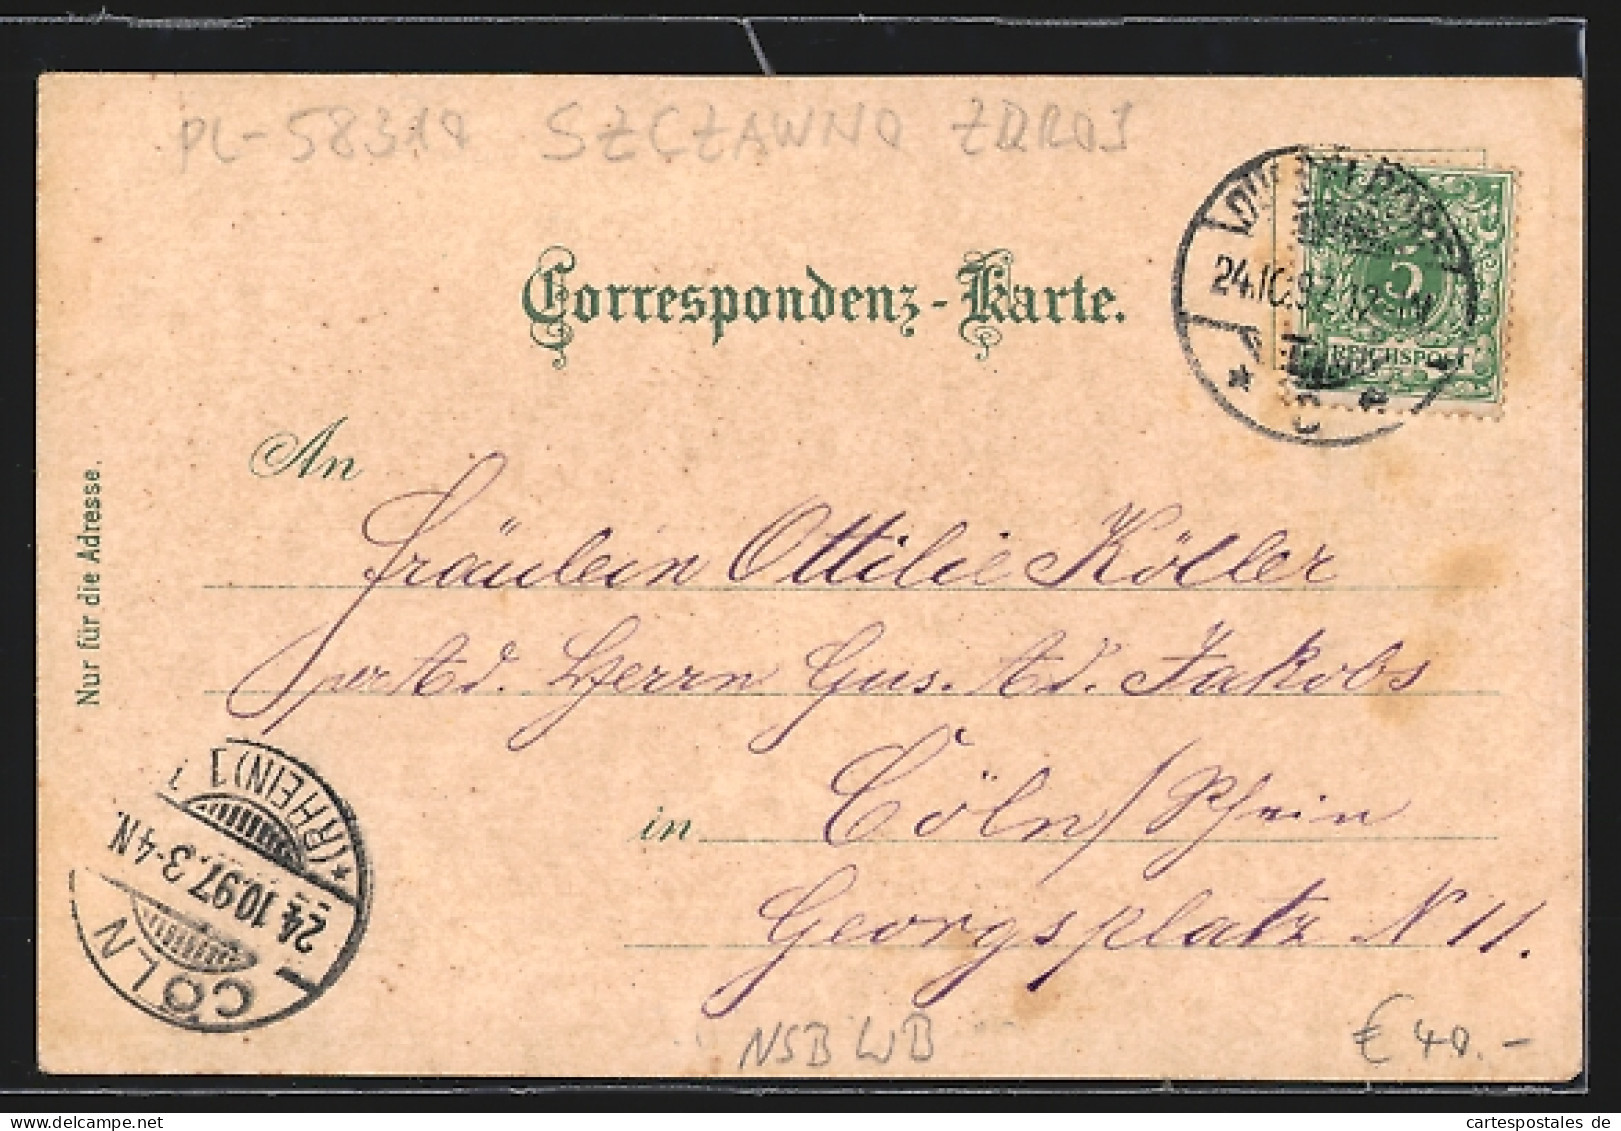 PL-58310 SZCZAWNO ZDROJ
DUESSELDORF
24.10.97.12-1N
5
REICHSPOST
Correspondenz-Karte.
An
Fräulein Ottilie Köller
pr Ad. Herrn Gus. Ad. Jakobs
in Cöln/Rhein
Georgsplatz N 11.
Nur für die Adresse.
CÖLN
24.10.97.3-4N.
*(RHEIN) 1
NSB WB
€ 40.-
cartespostales de